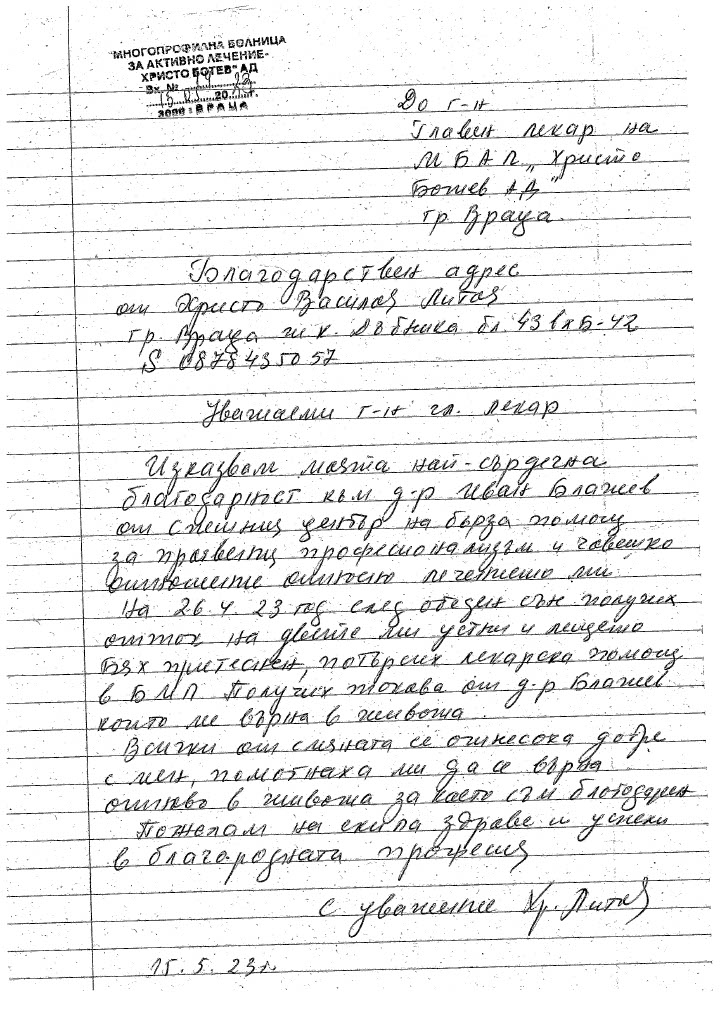 "МНОГОПРОФИЛНА БОЛНИЦА
ЗА АКТИВНО ЛЕЧЕНИЕ-
ХРИСТО БОТЕВ" АД
Вх. №
20 г.
3000 ВРАЦА
До г-н
Главен лекар на
МБАЛ „Христо
Ботев АД"
гр Враца.
Благодарствен адрес
от Христо Василов Литов
гр. Враца ж.к. Дъбника бл. 43 вх Б-42
S 0878435057
Уважаеми г-н гл. лекар
Изказвам моята най-сърдечна
благодарност към д-р Иван Блажев
от спешния център на бърза помощ
за проявения професионализъм и човешко
отношение относно лечението ми
На 26.4.23 год след обеден сън получих
оток на двете ми устни и лицето
Бях притеснен, потърсих лекарска помощ
в БМП Получих такава от д-р Блажев
който ме върна в живота.
Всички от смяната се отнесоха добре
с мен, помогнаха ми да се върна
отново в живота за което съм благодарен
Пожелам на екипа здраве и успехи
в благородната професия
С уважение Хр. Литов
15.5.23г.